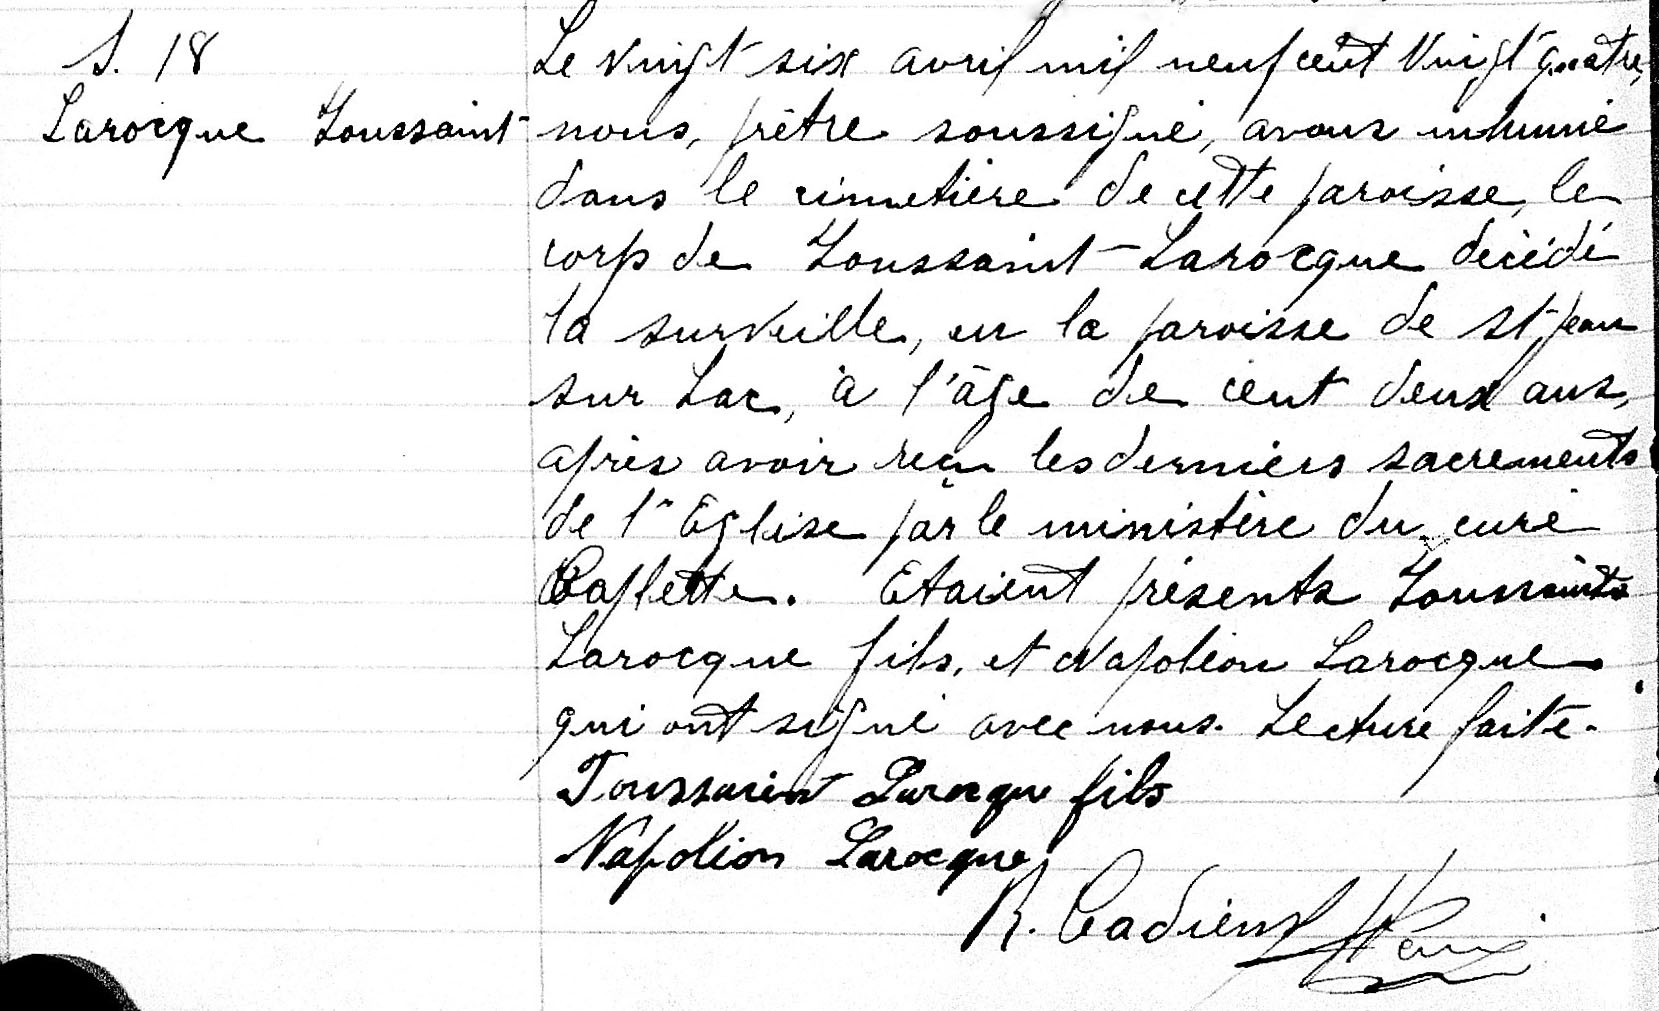 S. 18
Larocque Toussaint
Le vingt six avril mil neuf cent vingt quatre,
nous, prêtre soussigné, avons inhumé
dans le cimetière de cette paroisse, le
corp de Toussaint Larocque décédé
la surveille, en la paroisse de St Jean
sur Lac, à l'âge de cent deux ans,
après avoir reçu les derniers sacrements
de l'Eglise par le ministère du curé
Caplette. Etaient présents Toussaints
Larocque fils, et Napoléon Larocque
qui ont signé avec nous. Lecture faite.
Toussaint Larocque fils
Napoléon Larocque
R. Cadieux